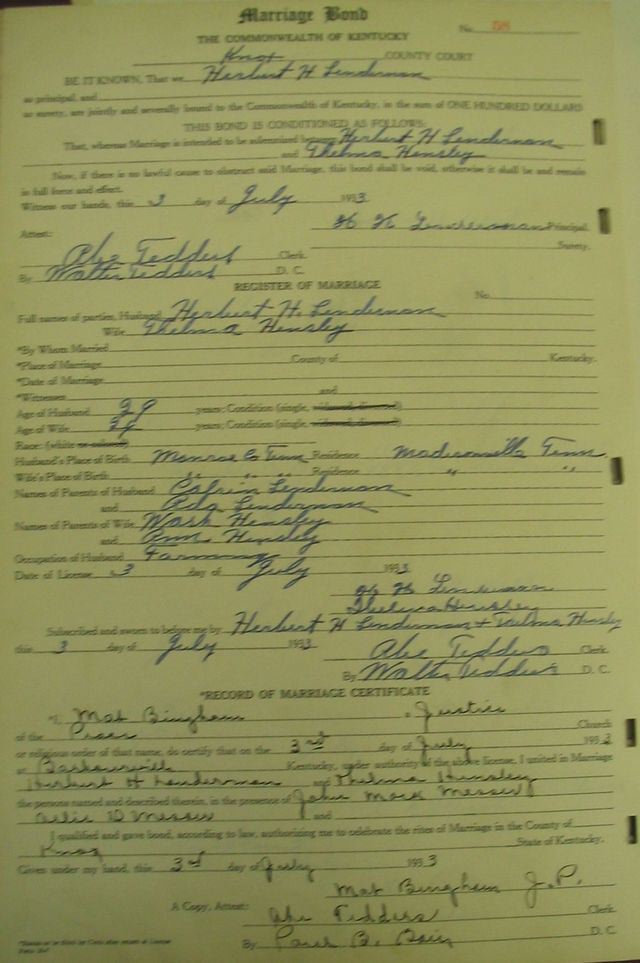 Marriage Bond
No. 58
THE COMMONWEALTH OF KENTUCKY
Knox COUNTY COURT
BE IT KNOWN, That we Herbert H Lenderman
as principal, and
as surety, are jointly and severally bound to the Commonwealth of Kentucky, in the sum of ONE HUNDRED DOLLARS
THIS BOND IS CONDITIONED AS FOLLOWS:
That, whereas Marriage is intended to be solemnized between Herbert H Lenderman
and Thelma Hensley
Now, if there is no lawful cause to obstruct said Marriage, this bond shall be void, otherwise it shall be and remain
in full force and effect.
Witness our hands, this 3 day of July 1933.
H H Lenderman Principal.
Attest:
Surety.
Abe Tedders Clerk.
By Walter Tedders D. C.
REGISTER OF MARRIAGE
No.
Full names of parties, Husband Herbert H. Lenderman
Wife Thelma Hensley
*By Whom Married
*Place of Marriage County of Kentucky.
*Date of Marriage
*Witnesses and
Age of Husband 29 years; Condition (single, widowed, divorced)
Age of Wife years; Condition (single, widowed, divorced)
Race: (white or colored)
Husband's Place of Birth Monroe Co Tenn Residence Madisonville Tenn
Wife's Place of Birth " " " Residence " "
Names of Parents of Husband Lenderman
and Ada Lenderman
Names of Parents of Wife Wash Hensley
and Ann Hensley
Occupation of Husband Farming
Date of License 3 day of July 1933
H H Lenderman
Thelma Hensley
Subscribed and sworn to before me by Herbert H Lenderman + Thelma Hensley
this 3 day of July 1933
Abe Tedders Clerk.
By Walter Tedders D. C.
*RECORD OF MARRIAGE CERTIFICATE
I, Mat Bingham a Justice
of the Peace Church
or religious order of that name, do certify that on the 3rd day of July 1933
at Barbourville Kentucky, under authority of the above license, I united in Marriage
Herbert H Lenderman and Thelma Hensley
the persons named and described therein, in the presence of John Mack Messer
D Messer and
I qualified and gave bond, according to law, authorizing me to celebrate the rites of Marriage in the County of
Knox State of Kentucky.
Given under my hand, this 3rd day of July 1933
Mat Bingham J.P.
A Copy, Attest: Abe Tedders Clerk.
By B. D. C.